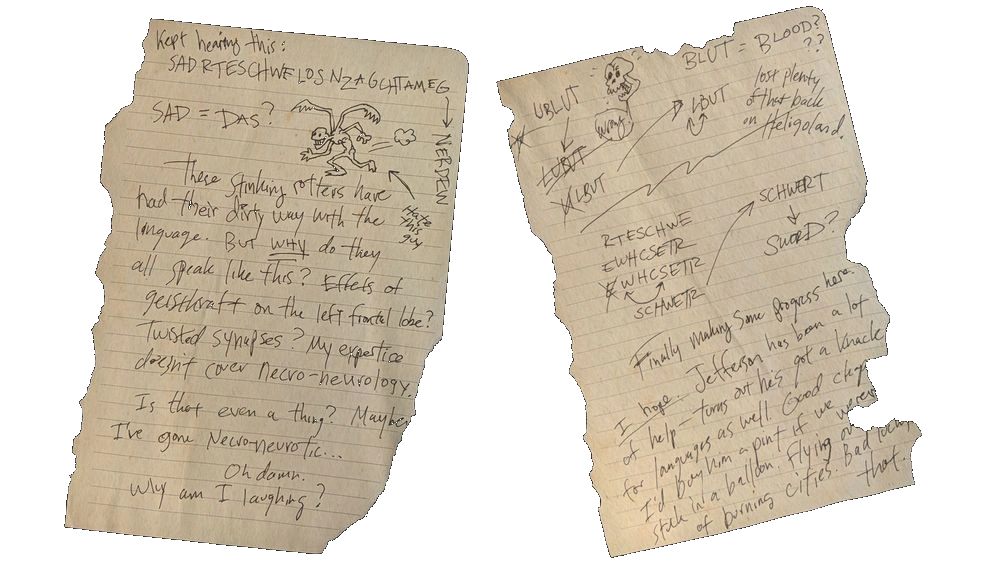 Kept hearing this:
SADRTESCHWELOSNZAGCHTAMEG
NERDEW
SAD = DAS?
Hate
this
guy
These stinking rotters have
had their dirty way with the
language. But WHY do they
all speak like this? Effects of
geistkraft on the left frontal lobe?
Twisted synapses? My expertise
doesn't cover necro-neurology.
Is that even a thing? Maybe
I've gone Necro-neurotic...
Oh damn.
Why am I laughing?
BLUT = BLOOD?
??
UBLUT
LUBUT
wrong!
LBUT
lost plenty
of that back
on Heligoland.
RTESCHWE
EWHCSETR
EWHCSETR
SCHWETR
SCHWERT
SWORD?
Finally making some progress here.
I hope. Jefferson has been a lot
of help - turns out he's got a knack
for languages as well. Good chap.
I'd buy him a pint if we weren't
stuck in a balloon. Flying
of burning cities. Bad
that.